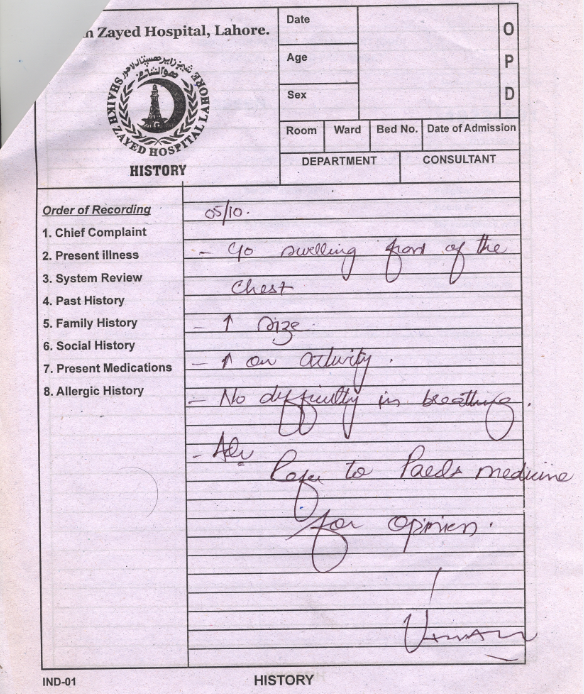 n Zayed Hospital, Lahore.
SHAIKH ZAYED HOSPITAL LAHORE
HISTORY
Date
Age
Sex
O
P
D
Room Ward Bed No. Date of Admission
DEPARTMENT CONSULTANT
Order of Recording
1. Chief Complaint
2. Present Illness
3. System Review
4. Past History
5. Family History
6. Social History
7. Present Medications
8. Allergic History
05/10.
- C/o swelling front of the
chest
- ↑ size.
- ↑ on activity.
- No difficulty in breathing.
- Adv
Refer to Paeds medicine
for opinion.
IND-01 HISTORY